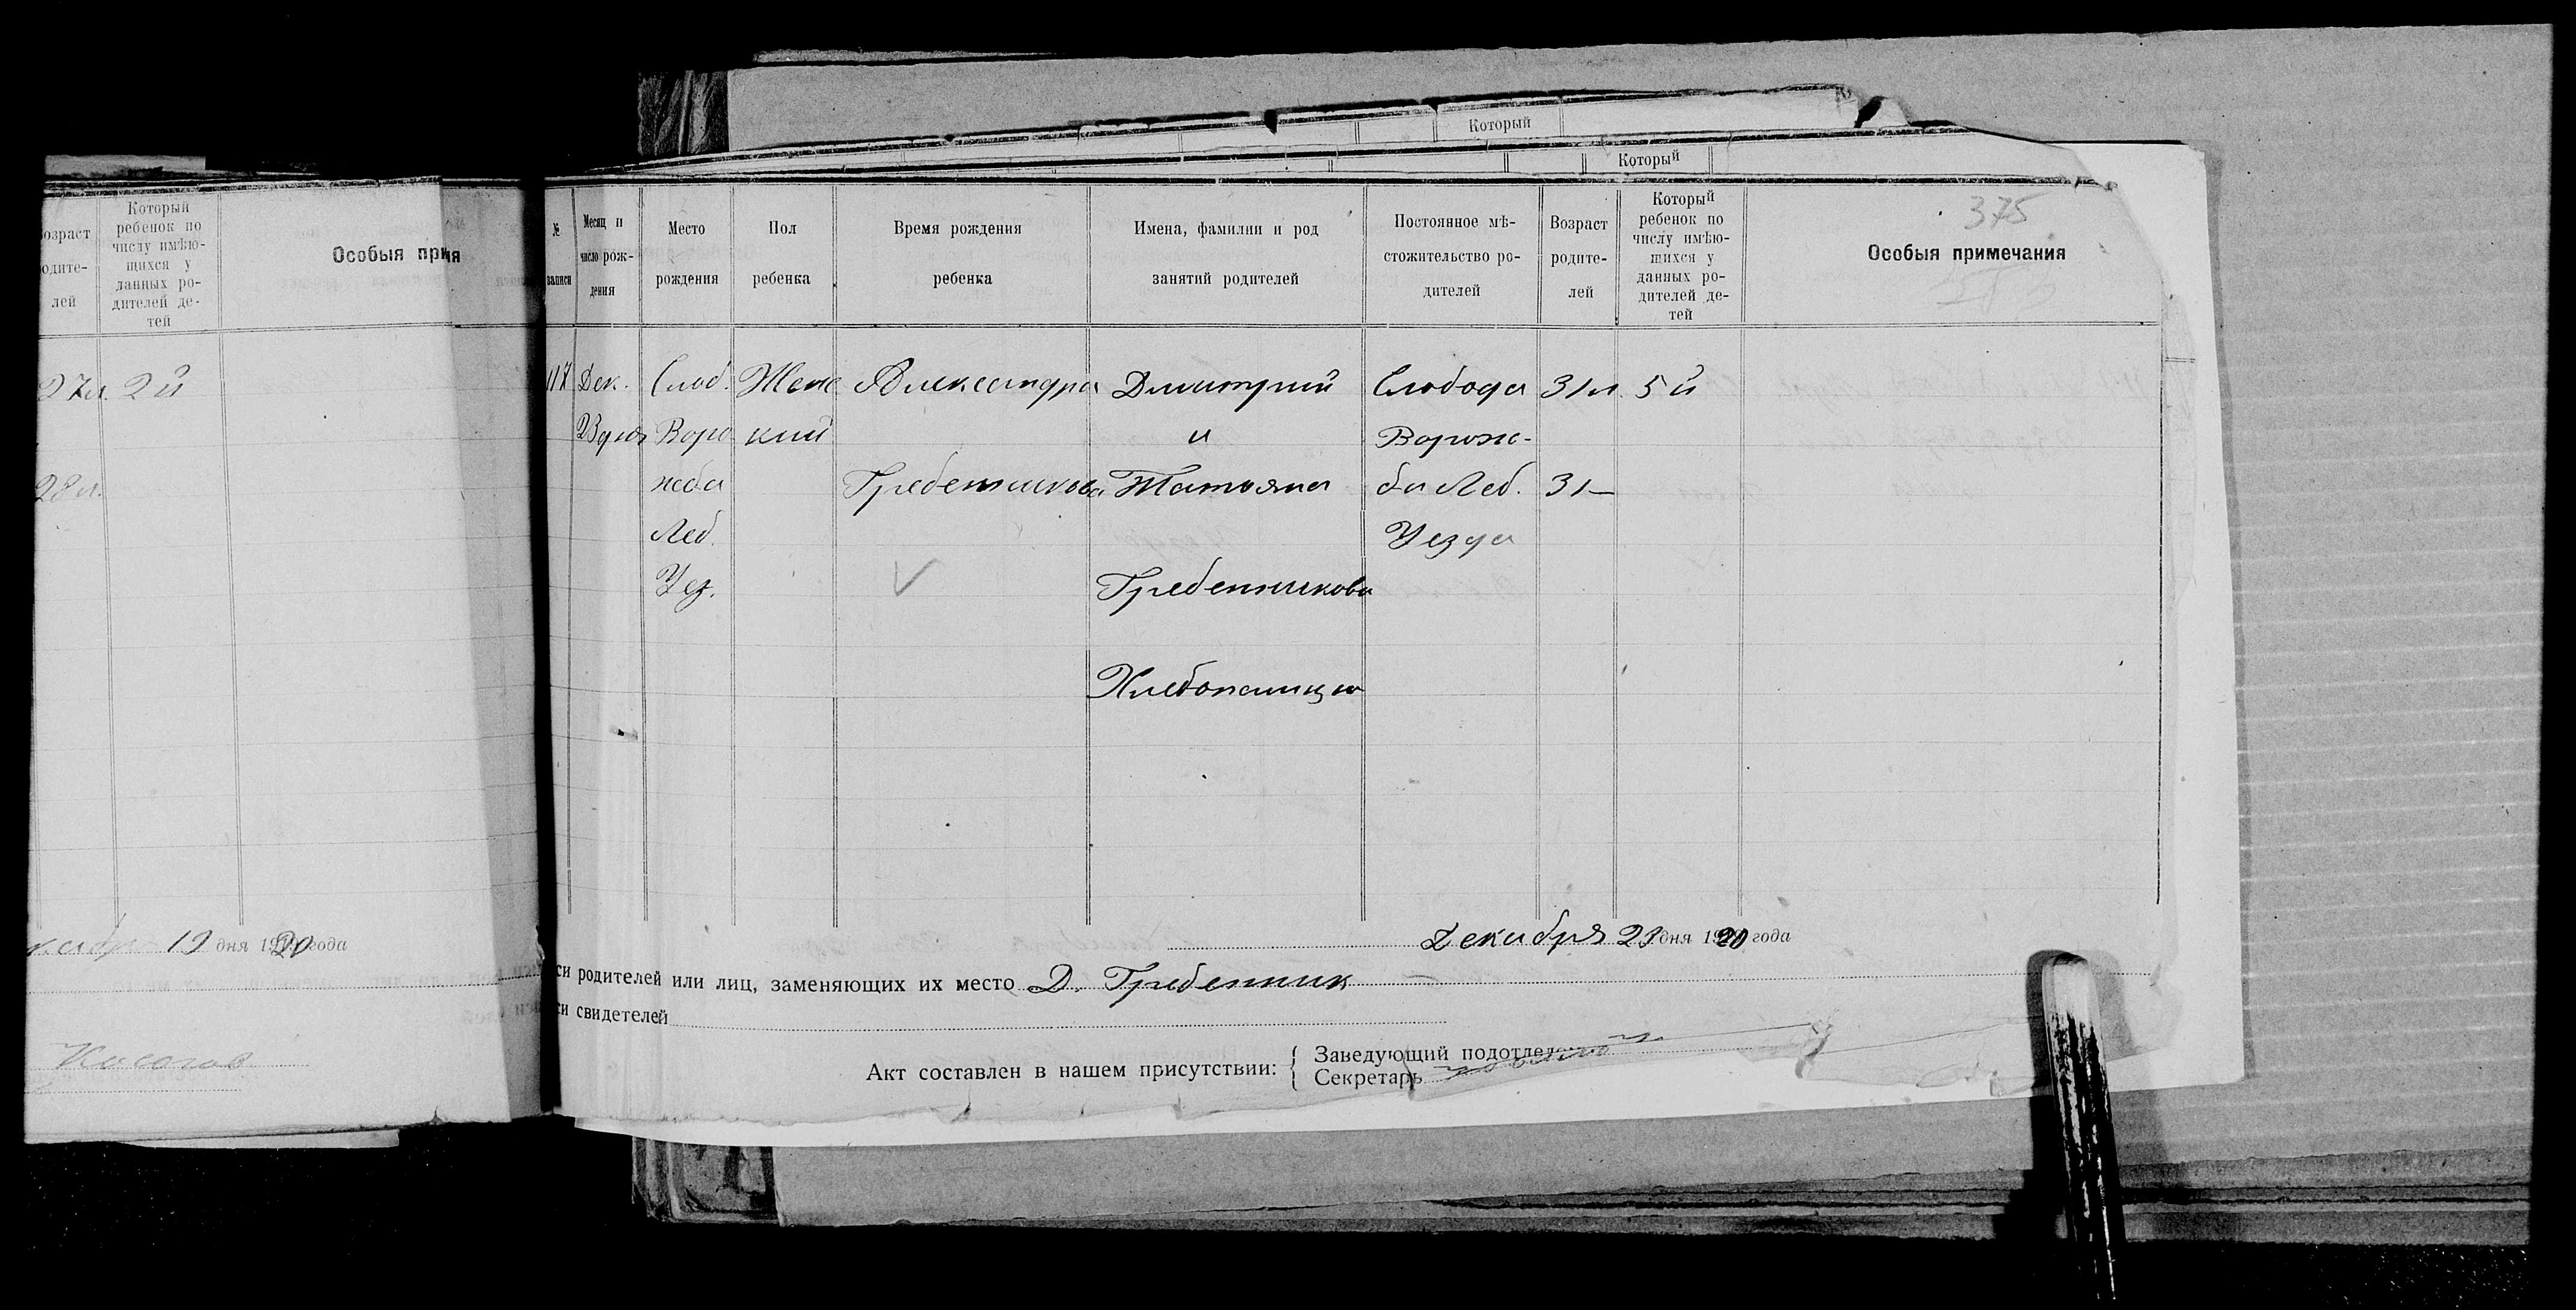 Который
Который
озраст
одите-
лей
Который
ребенок по
числу имѣю-
щихся у
данных ро-
дителей де-
тей
Особыя прия
27л. 2й
28л.
кабр 19 дня 1920 года
№
записи
Месяц и
число рож-
дения
Место
рождения
Пол
ребенка
Время рождения
ребенка
Имена, фамилии и род
занятий родителей
Постоянное мѣ-
стожительство ро-
дителей
Возраст
родите-
лей
Который
ребенок по
числу имѣю-
щихся у
данных ро-
дителей де-
тей
375
Особыя примечания
117 Дек. Слоб. Женс Александра Дмитрий Слобода 31л. 5й
23 дня Воро кий и Ворож-
жба Гребенникова Татояна ба Леб. 31—
Леб. Уезда
Уез. Гребенникови
Хлебопашцы
Декабря 23 дня 1920 года
си родителей или лиц, заменяющих их место Д. Гребенник
си свидетелей
Акт составлен в нашем присутствии: { Заведующий подотдел
Секретарь